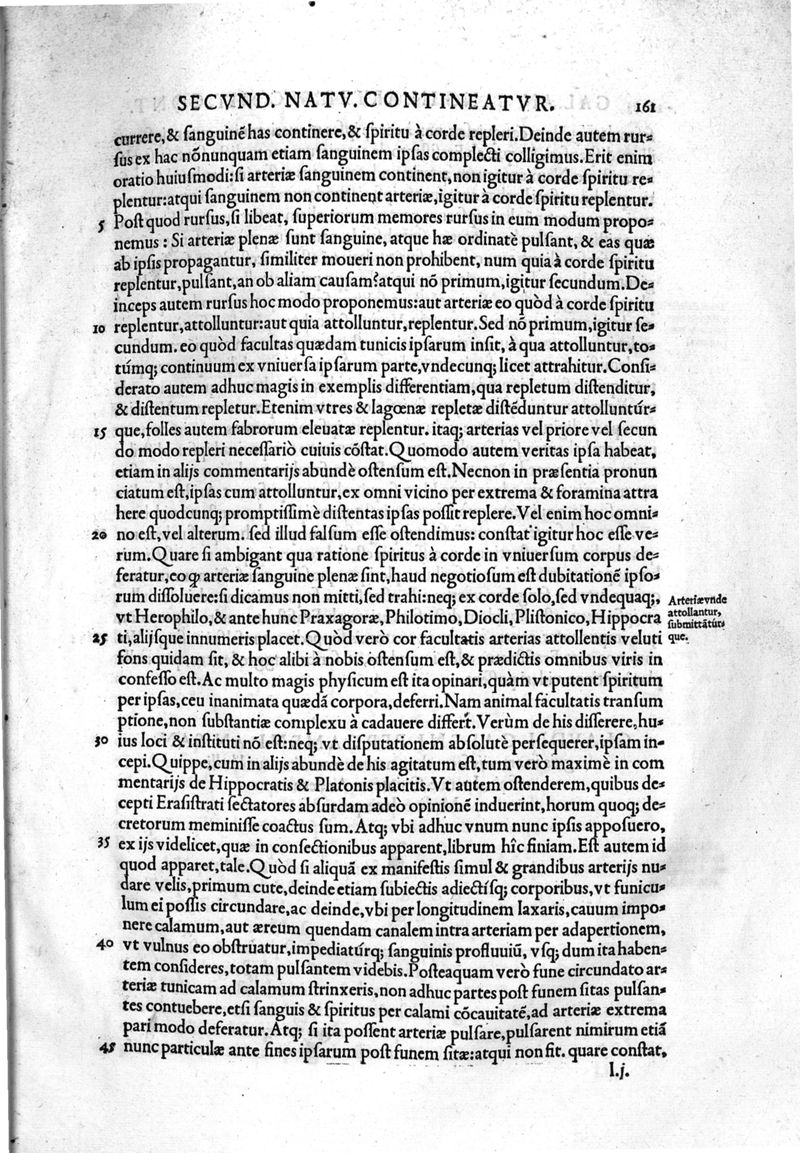 SECVND. NATV. CONTINEATVR. 161
currere,& ſanguinẽ has continere,& ſpiritu à corde repleri. Deinde autem rur-
ſus ex hac nõnunquam etiam ſanguinem ipſas complecti colligimus. Erit enim
oratio huiuſmodi: ſi arteriæ ſanguinem continent, non igitur à corde ſpiritu re-
plentur: atqui ſanguinem non continent arteriæ, igitur à corde ſpiritu replentur.
5 Poſt quod rurſus, ſi libeat, ſuperiorum memores rurſus in eum modum propo-
nemus: Si arteriæ plenæ ſunt ſanguine, atque hæ ordinatè pulſant, & eas quæ
ab ipſis propagantur, ſimiliter moueri non prohibent, num quia à corde ſpiritu
replentur, pulſant, an ob aliam cauſam? atqui nõ primum, igitur ſecundum. De-
inceps autem rurſus hoc modo proponemus: aut arteriæ eo quòd à corde ſpiritu
10 replentur, attolluntur: aut quia attolluntur, replentur. Sed nõ primum, igitur ſe-
cundum. eo quòd facultas quædam tunicis ipſarum inſit, à qua attolluntur, to-
túmq; continuum ex vniuerſa ipſarum parte, vndecunq; licet attrahitur. Conſi-
derato autem adhuc magis in exemplis differentiam, qua repletum diſtenditur,
& diſtentum repletur. Etenim vtres & lagœnæ repletæ diſtẽduntur attolluntúr-
15 que, folles autem fabrorum eleuatæ replentur. itaq; arterias vel priore vel ſecun
do modo repleri neceſſariò cuiuis cõſtat. Quomodo autem veritas ipſa habeat,
etiam in alijs commentarijs abundè oſtenſum eſt. Necnon in præſentia pronun
ciatum eſt, ipſas cum attolluntur, ex omni vicino per extrema & foramina attra
here quodcunq; promptiſſimè diſtentas ipſas poſſit replere. Vel enim hoc omni-
20 no eſt, vel alterum. ſed illud falſum eſſe oſtendimus: conſtat igitur hoc eſſe ve-
rum. Quare ſi ambigant qua ratione ſpiritus à corde in vniuerſum corpus de-
feratur, eo ꝙ arteriæ ſanguine plenæ ſint, haud negotioſum eſt dubitationẽ ipſo-
rum diſſoluere: ſi dicamus non mitti, ſed trahi: neq; ex corde ſolo, ſed vndequaq;,
vt Herophilo, & ante hunc Praxagoræ, Philotimo, Diocli, Pliſtonico, Hippocra
25 ti, alijſque innumeris placet. Quòd verò cor facultatis arterias attollentis veluti
fons quidam ſit, & hoc alibi à nobis oſtenſum eſt, & prædictis omnibus viris in
confeſſo eſt. Ac multo magis phyſicum eſt ita opinari, quàm vt putent ſpiritum
per ipſas, ceu inanimata quædã corpora, deferri. Nam animal facultatis tranſum
ptione, non ſubſtantiæ complexu à cadauere differt. Verùm de his diſſerere, hu-
30 ius loci & inſtituti nõ eſt: neq; vt diſputationem abſolutè perſequerer, ipſam in-
cepi. Quippe, cum in alijs abundè de his agitatum eſt, tum verò maximè in com
mentarijs de Hippocratis & Platonis placitis. Vt autem oſtenderem, quibus de-
cepti Eraſiſtrati ſectatores abſurdam adeò opinionẽ induerint, horum quoq; de-
cretorum meminiſſe coactus ſum. Atq; vbi adhuc vnum nunc ipſis appoſuero,
35 ex ijs videlicet, quæ in conſectionibus apparent, librum hîc finiam. Eſt autem id
quod apparet, tale. Quòd ſi aliquã ex manifeſtis ſimul & grandibus arterijs nu-
dare velis, primum cute, deinde etiam ſubiectis adiectíſq; corporibus, vt funicu-
lum ei poſſis circundare, ac deinde, vbi per longitudinem laxaris, cauum impo-
nere calamum, aut æreum quendam canalem intra arteriam per adapertionem,
40 vt vulnus eo obſtruatur, impediatúrq; ſanguinis profluuiũ, vſq; dum ita haben-
tem conſideres, totam pulſantem videbis. Poſteaquam verò fune circundato ar-
teriæ tunicam ad calamum ſtrinxeris, non adhuc partes poſt funem ſitas pulſan-
tes contuebere, etſi ſanguis & ſpiritus per calami cõcauitatẽ, ad arteriæ extrema
pari modo deferatur. Atq; ſi ita poſſent arteriæ pulſare, pulſarent nimirum etiã
45 nunc particulæ ante fines ipſarum poſt funem ſitæ: atqui non fit. quare conſtat,
l.j.
Arteriæ vnde
attollantur,
ſubmittãtúr-
que.